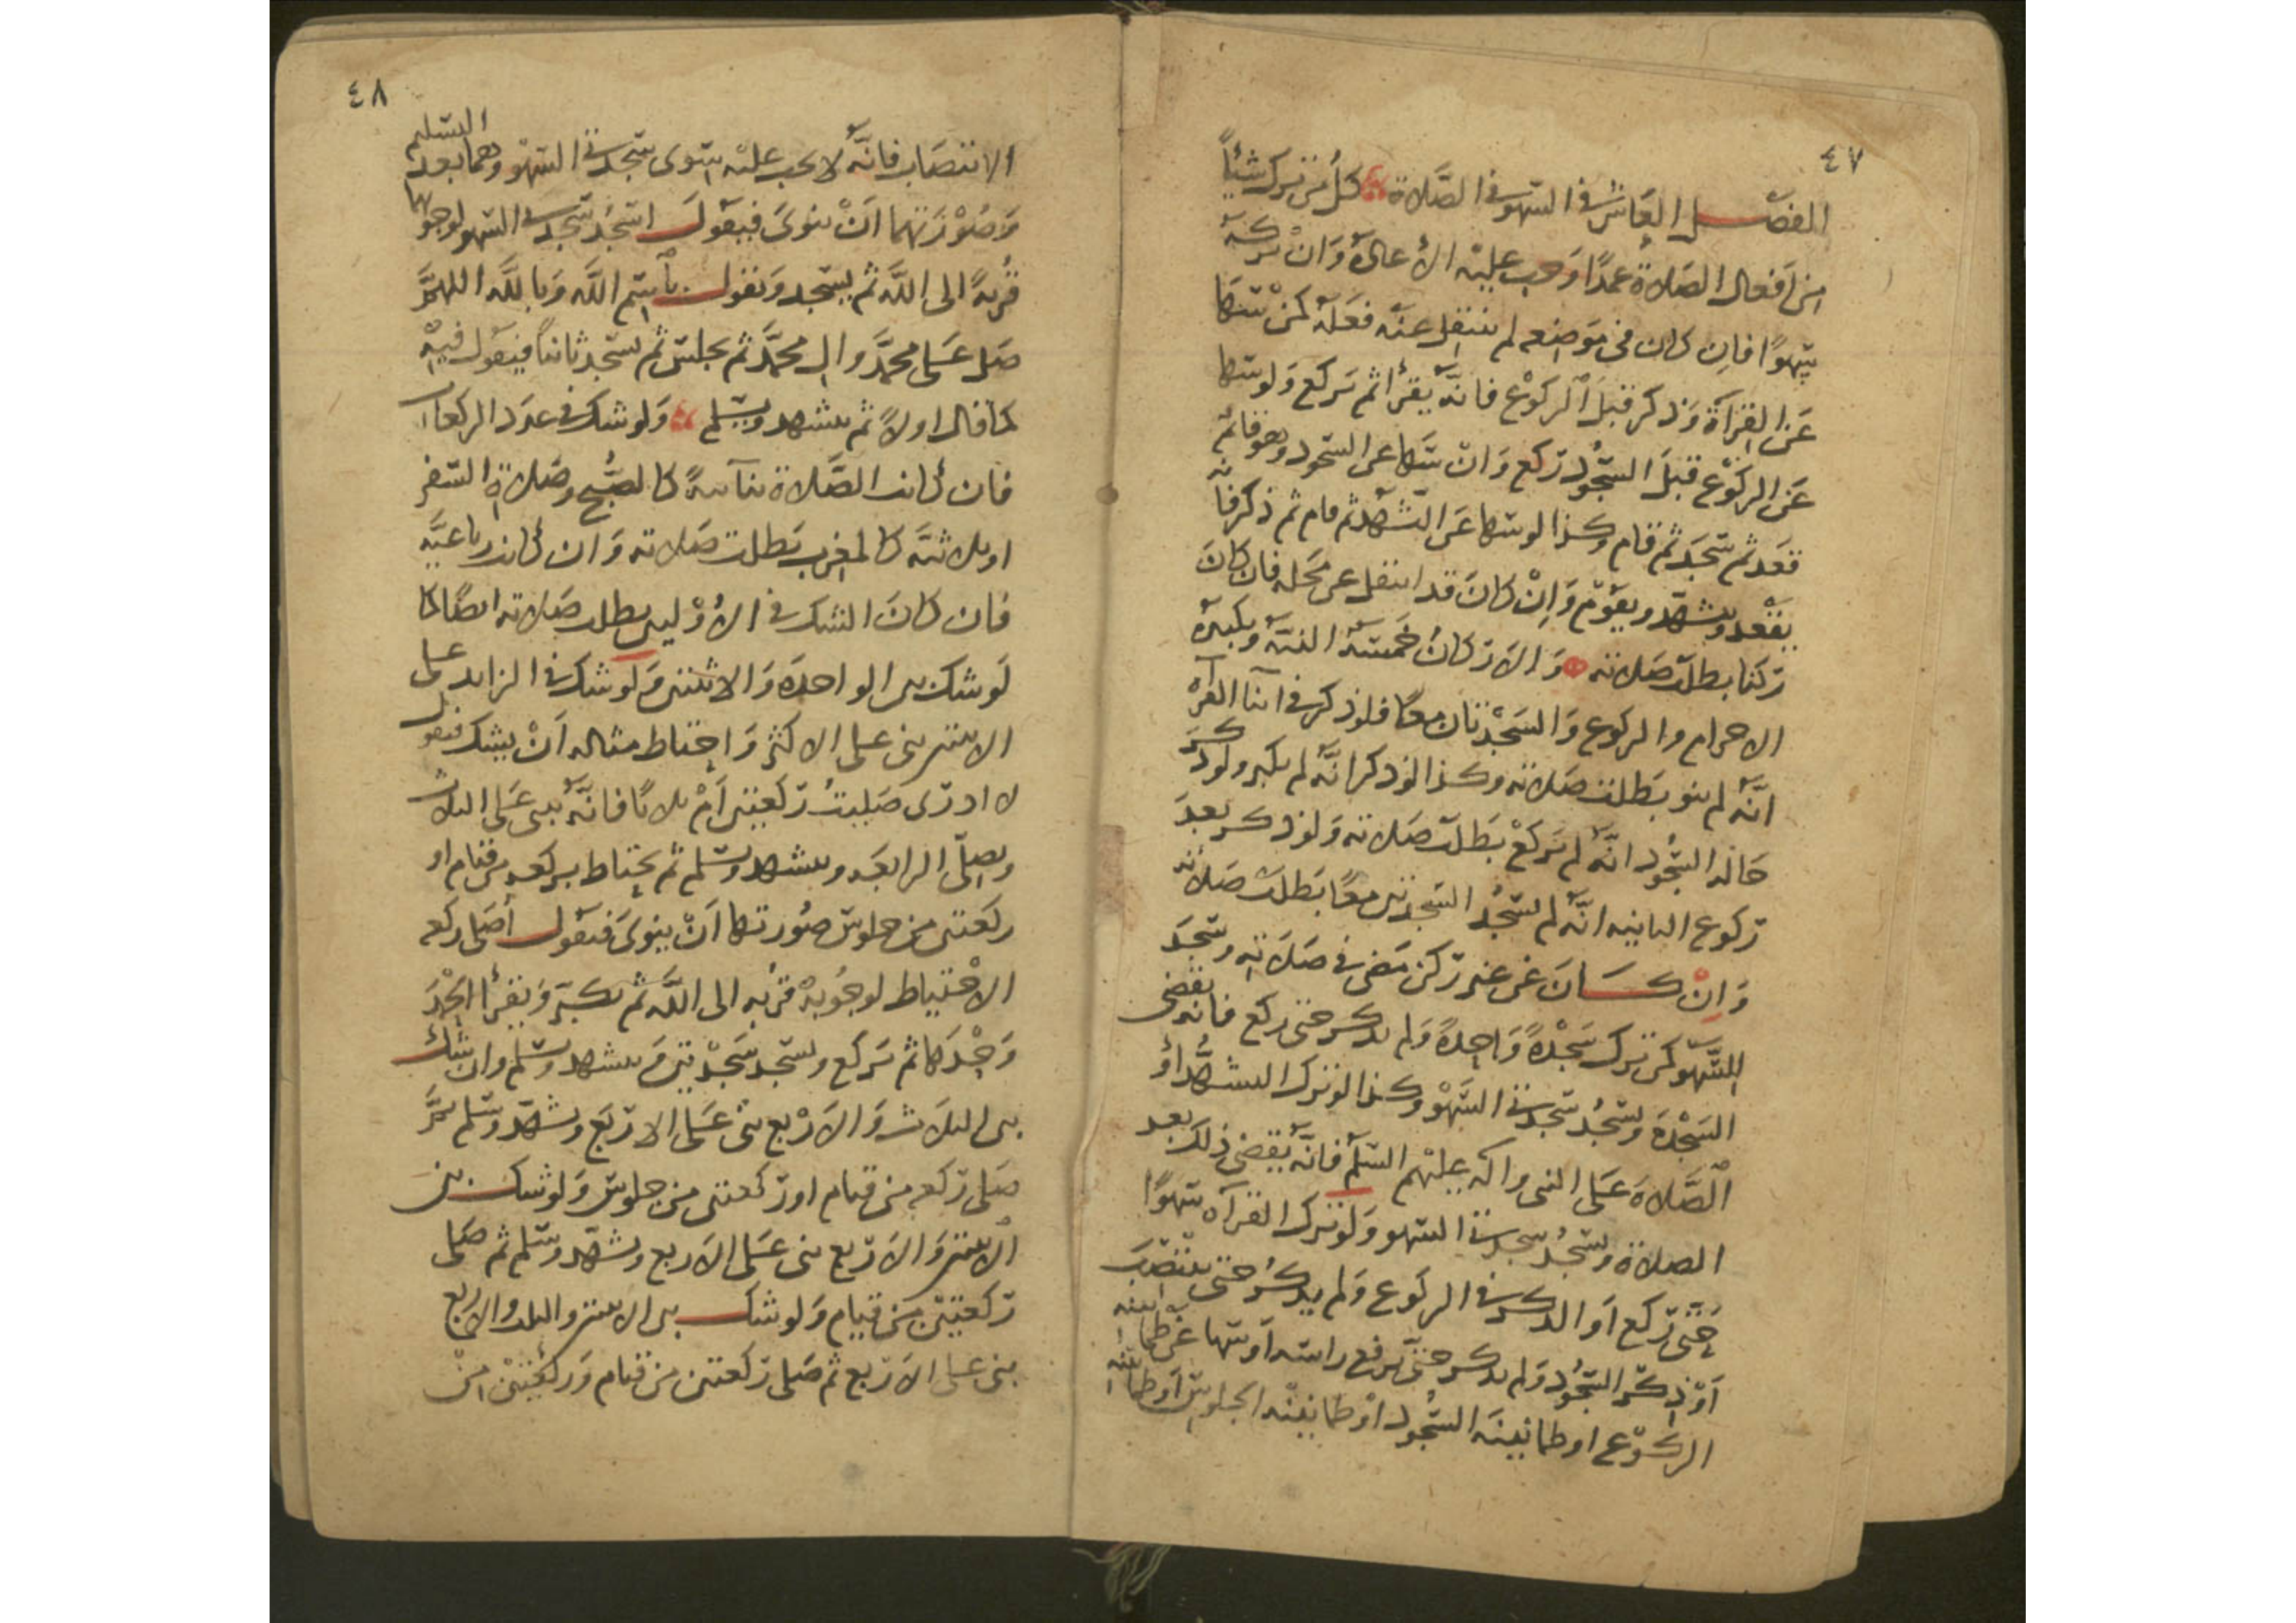 ٤٧
الفصل العاشر في السهو في الصلاة كل من ترك شيئاً
من أفعال الصلاة عمدًا وجب عليه الاعادة وان تركه
سهوًا فان كان في موضعه لم ينتقل عنه فعله كمن سها
عن القراة وذكر قبل الركوع فانه يقرأ ثم يركع ولو سها
عن الركوع قبل السجود ركع وان سها عن السجود وهو قائم
قعد ثم سجد ثم قام وكذا لو سها عن التشهد ثم قام ثم ذكر فانه
يقعد ويتشهد ويقوم وان كان قد انتقل عن محله فان كان
ركنا بطلت صلاته والاركان خمسة النية وتكبيرة
الاحرام والركوع والسجدتان معًا فلو ذكر في اثنا القراة
انه لم ينو بطلت صلاته وكذا لو ذكر انه لم يكبر ولو ذكر
حالة السجود انه لم يركع بطلت صلاته ولو ذكر بعد
ركوع الثانيه انه لم يسجد السجدتين معًا بطلت صلاته
وان كان غير ركن مضى في صلاته وسجد
للسهو كمن ترك سجدةً واحدةً ولم يذكر حتى ركع فانه يقضي
السجدة ويسجد سجدتي السهو وكذا لو ترك التشهد أو
الصلاة على النبي واله عليهم السلم فانه يقضي ذلك بعد
الصلاة ويسجد سجدتي السهو ولو ترك القرآه سهوًا
حتى ركع أو الذكر في الركوع ولم يذكر حتى ينتصب
أو ذكر السجود ولم يذكر حتى يرفع راسه أو سها عن طمانينه
الركوع او طمانينة السجود أو طمانينة الجلوس أو طمانينه
٤٨
الانتصاب فانه لا يجب عليه سوى سجدتي السهو وهما بعد التسليم
وصورتهما ان ينوى فيقول اسجد سجدتي السهو لوجوبهما
قربةً الى الله ثم يسجد ويقول بسم الله وبالله اللهم
صل على محمد وال محمد ثم يجلس ثم يسجد ثانياً فيقول فيه
كما قال اولاً ثم يتشهد ويسلم ولو شك في عدد الركعات
فان كانت الصلاة ثنآئيةً كالصبح وصلاة السفر
او ثلاثية كالمغرب بطلت صلاته وان كانت رباعية
فان كان الشك في الأوليين بطلت صلاته ايضًا كما
لو شك بين الواحدة والاثنتين ولو شك في الزايد على
الاثنتين بنى على الاكثر واحتاط مثاله أن يشك فيقول
لا ادرى صليت ركعتين أم ثلاثًا فانه يبنى على الثلاث
ويصلى الرابعة ويتشهد ويسلم ثم يحتاط بركعه من قيام او
ركعتين من جلوس صورتها ان ينوى فيقول أصلى ركعه
الاحتياط لوجوبه قربه الى الله ثم يكبر ويقرأ الحمد
وحدها ثم يركع ويسجد سجدتين ويتشهد ويسلم وان شك
بين الثلاث والاربع بنى على الاربع وتشهد وسلم ثم
صلى ركعه من قيام او ركعتين من جلوس ولو شك بين
الاثنتين والاربع بنى على الاربع وتشهد وسلم ثم صلى
ركعتين من قيام ولو شك بين الاثنتين والثلث والاربع
بنى على الاربع ثم صلى ركعتين من قيام وركعتين من